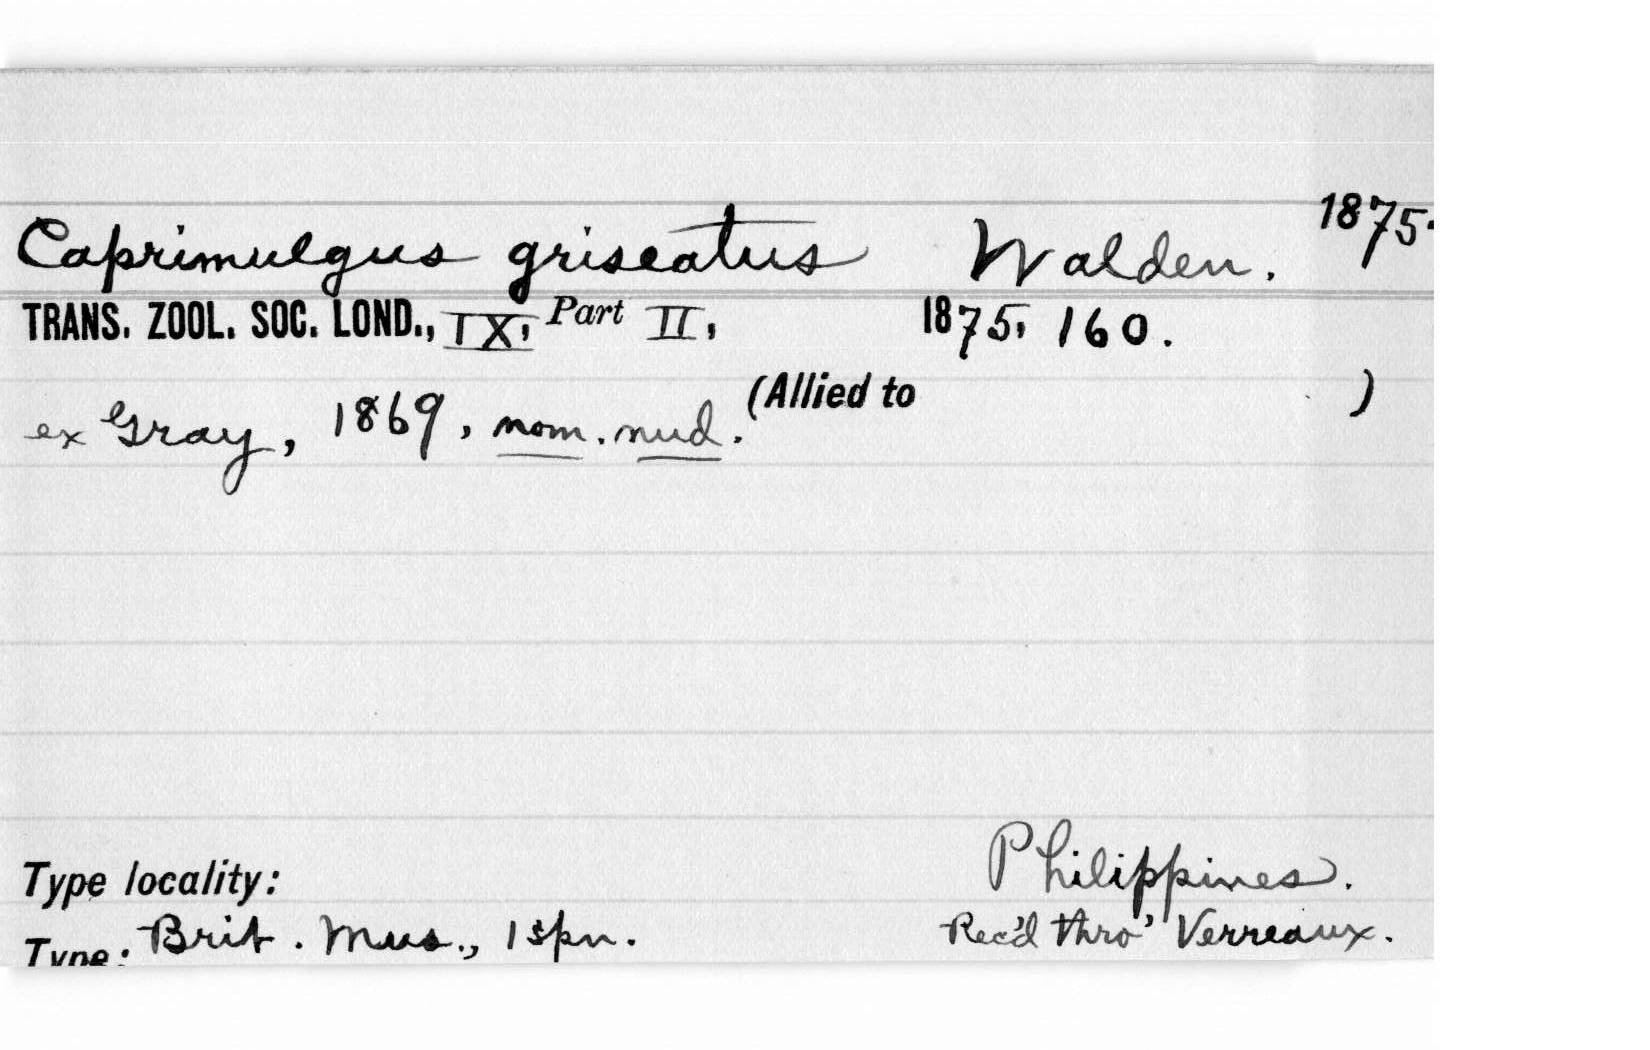 Caprimulgus griseatus Walden. 1875.
TRANS. ZOOL. SOC. LOND., IX, Part II, 1875, 160.
ex Gray, 1869, nom. nud. (Allied to )
Type locality: Philippines.
Type: Brit. Mus., 1 spn. Rec'd thro' Verreaux.